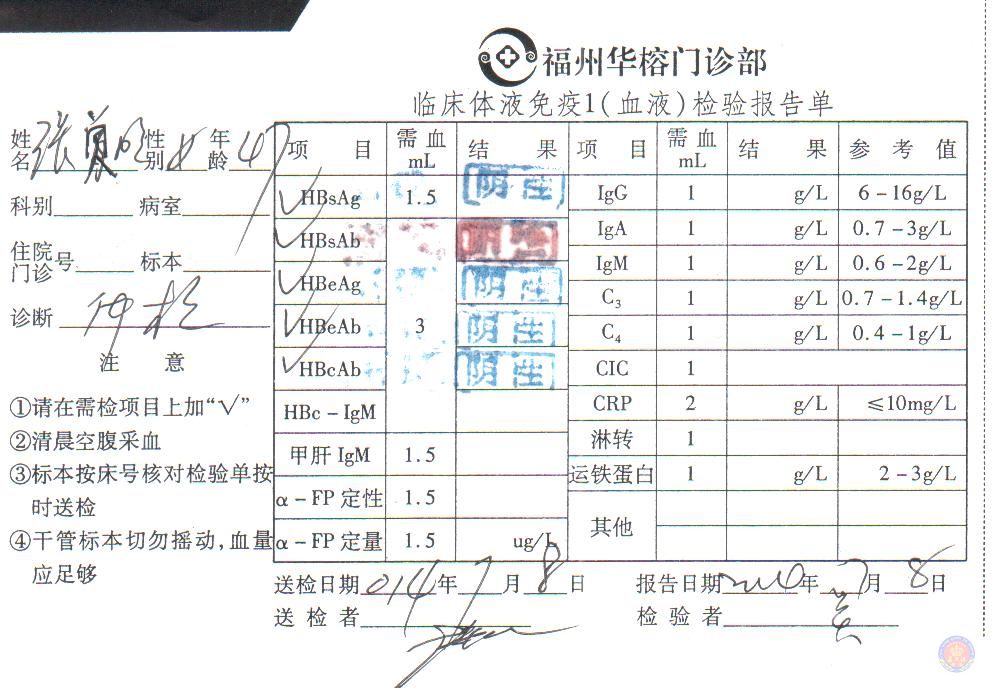 福州华榕门诊部
临床体液免疫1(血液)检验报告单
姓名 张 性别 女 年龄 47
科别 病室
住院门诊号 标本
诊断 体检
注 意
①请在需检项目上加“√”
②清晨空腹采血
③标本按床号核对检验单按
时送检
④干管标本切勿摇动,血量
应足够
项 目 需血mL 结 果 项 目 需血mL 结 果 参 考 值
√HBsAg 1.5 阴性 IgG 1 g/L 6-16g/L
√HBsAb IgA 1 g/L 0.7-3g/L
√HBeAg 阴性 IgM 1 g/L 0.6-2g/L
√HBeAb 3 阴性 C3 1 g/L 0.7-1.4g/L
√HBcAb 阴性 C4 1 g/L 0.4-1g/L
CIC 1
HBc-IgM CRP 2 g/L ≤10mg/L
甲肝IgM 1.5 淋转 1
α-FP定性 1.5 运铁蛋白 1 g/L 2-3g/L
α-FP定量 1.5 ug/L 其他
送检日期 014年7月8日 报告日期 2014年7月8日
送检者 检验者